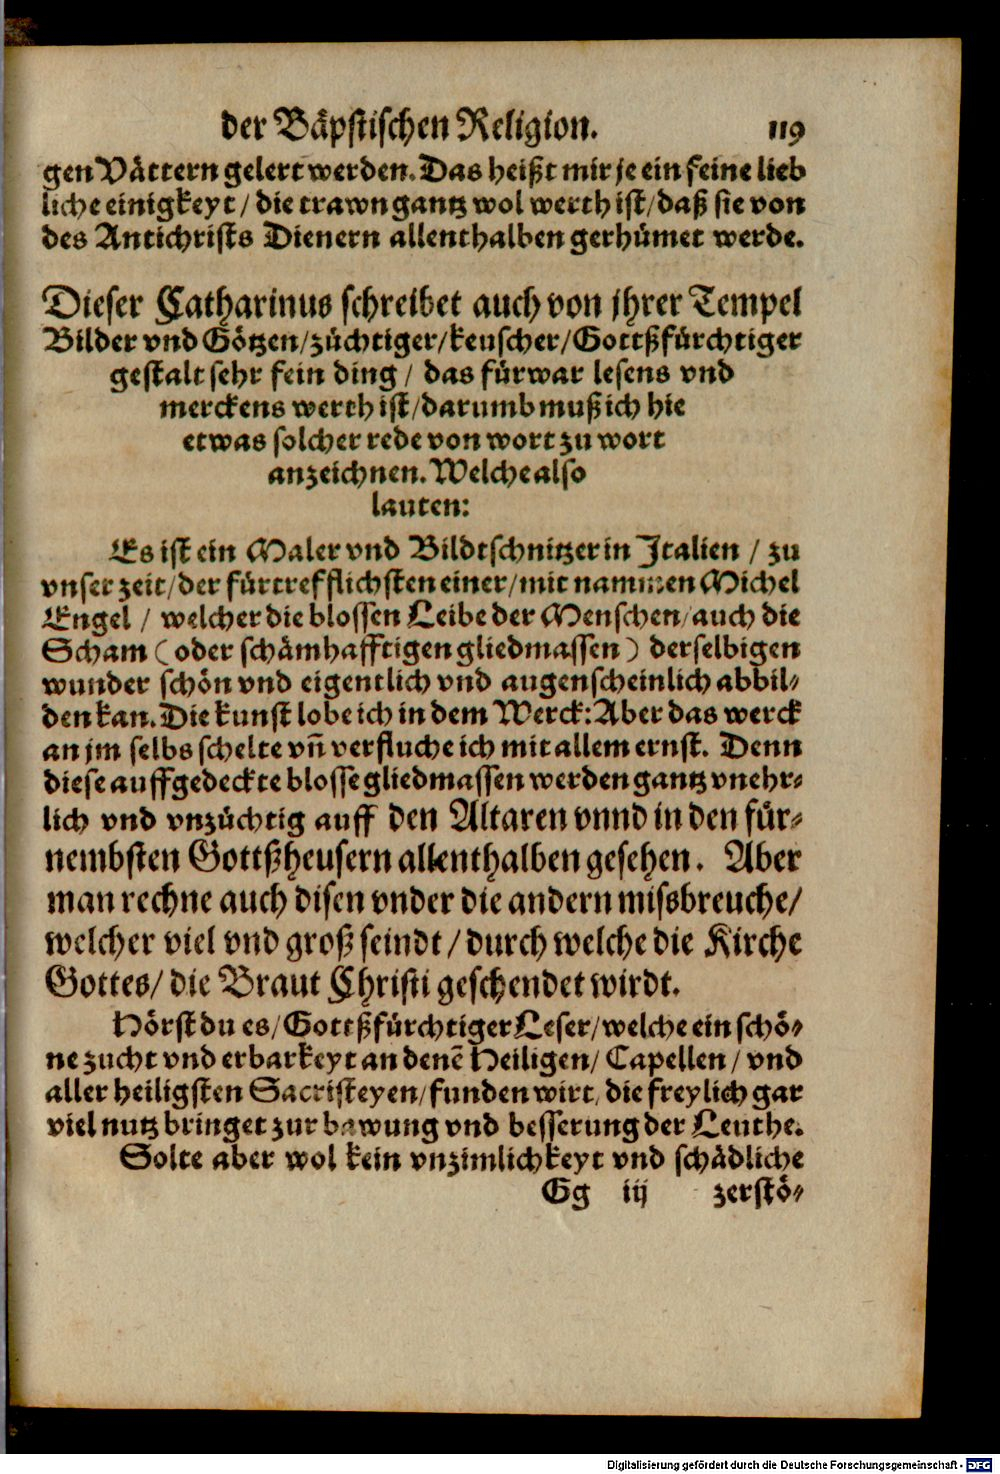 der Bäpstischen Religion. 119
gen Vättern gelert werden. Das heißt mir je ein feine lieb
liche einigkeyt / die trawn gantz wol werth ist / daß sie von
des Antichrists Dienern allenthalben gerhümet werde.
Dieser Catharinus schreibet auch von jhrer Tempel
Bilder vnd Götzen / züchtiger / keuscher / Gottßfürchtiger
gestalt sehr fein ding / das fürwar lesens vnd
merckens werth ist / darumb muß ich hie
etwas solcher rede von wort zu wort
anzeichnen. Welche also
lauten:
Es ist ein Maler vnd Bildtschnitzer in Italien / zu
vnser zeit / der fürtrefflichsten einer / mit nammen Michel
Engel / welcher die blossen Leibe der Menschen / auch die
Scham (oder schämhafftigen gliedmassen) derselbigen
wunder schön vnd eigentlich vnd augenscheinlich abbil-
den kan. Die kunst lobe ich in dem Werck: Aber das werck
an jm selbs schelte vñ verfluche ich mit allem ernst. Denn
diese auffgedeckte blosse gliedmassen werden gantz vnehr-
lich vnd vnzüchtig auff den Altaren vnnd in den für-
nembsten Gottßheusern allenthalben gesehen. Aber
man rechne auch disen vnder die andern missbreuche /
welcher viel vnd groß seindt / durch welche die Kirche
Gottes / die Braut Christi geschendet wirdt.
Hörst du es / Gottßfürchtiger Leser / welche ein schö-
ne zucht vnd erbarkeyt an denẽ Heiligen / Capellen / vnd
aller heiligsten Sacristeyen / funden wirt / die freylich gar
viel nutz bringet zur bawung vnd besserung der Leuthe.
Solte aber wol kein vnzimlichkeyt vnd schädliche
Gg iij zerstö-
Digitalisierung gefördert durch die Deutsche Forschungsgemeinschaft - DFG